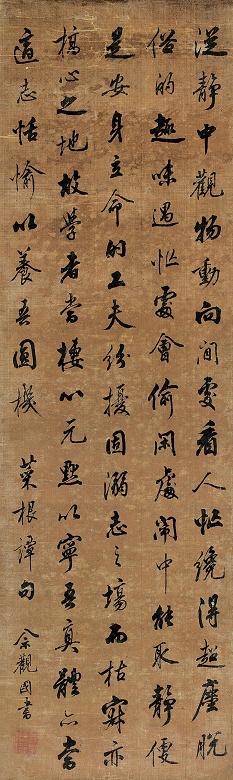 從靜中觀物動向閒處看人忙纔得超塵脫
俗的趣味遇忙處會偷閑處鬧中能取靜便
是安身立命的工夫紛擾固溺志之場而枯寂亦
槁心之地故學者當棲心元默以寧吾真體亦當
適志恬愉以養吾圓機 菜根譚句 余觀國書